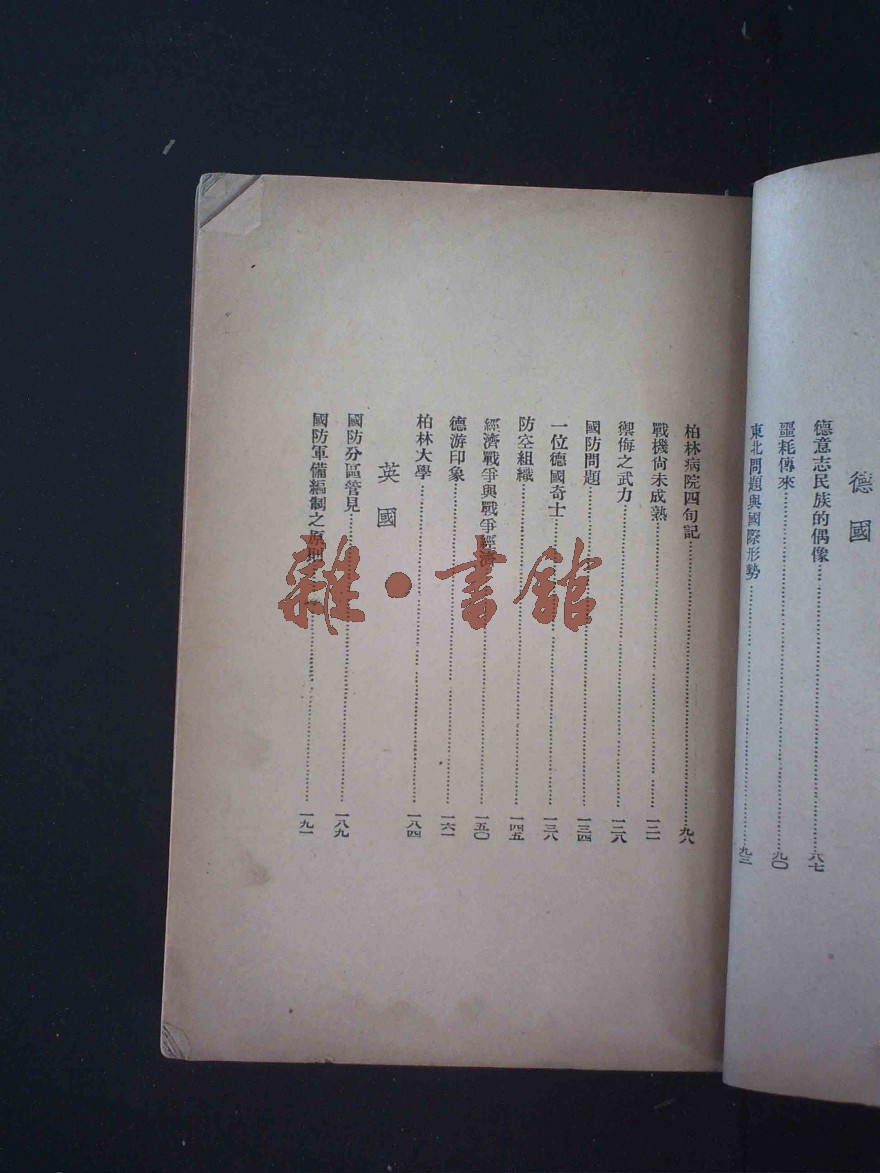 德國
德意志民族的偶像……八七
噩耗傳來……九〇
東北問題與國際形勢……九三
柏林病院四旬記……九八
戰機尙未成熟……一二一
禦侮之武力……一二八
國防問題……一三四
一位德國奇士……一三八
防空組織……一四五
經濟戰爭與戰爭經濟……一五〇
德游印象……一六一
柏林大學……一八四
英國
國防分區管見……一八九
國防軍備編制之原則……一九一
雜·書館